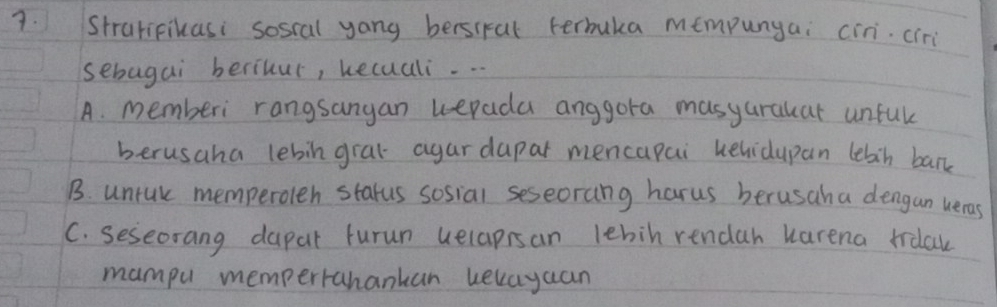 7. Stratifikasi sosial yang bersifat terbuka mempunyai ciri-ciri
sebagai berikut, kecuali ...
A. Memberi rangsangan kepada anggota masyarakat untuk
berusaha lebih giat agar dapat mencapai kehidupan lebih baik
B. untuk memperoleh status sosial seseorang harus berusaha dengan keras
C. Seseorang dapat turun kelapisan lebih rendah karena tidak
mampu mempertahankan kekayaan